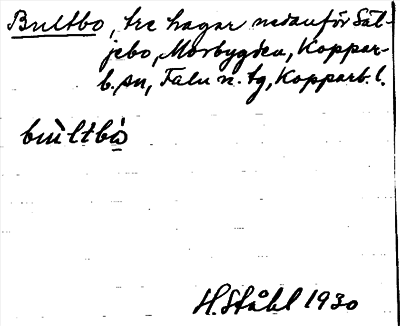 Bultbo, tre hagar nedanför Säl-
jebo, Morbygden, Koppar-
b. sn, Falu n. tg, Kopparb. l.
bùltbó
H. Ståhl 1930